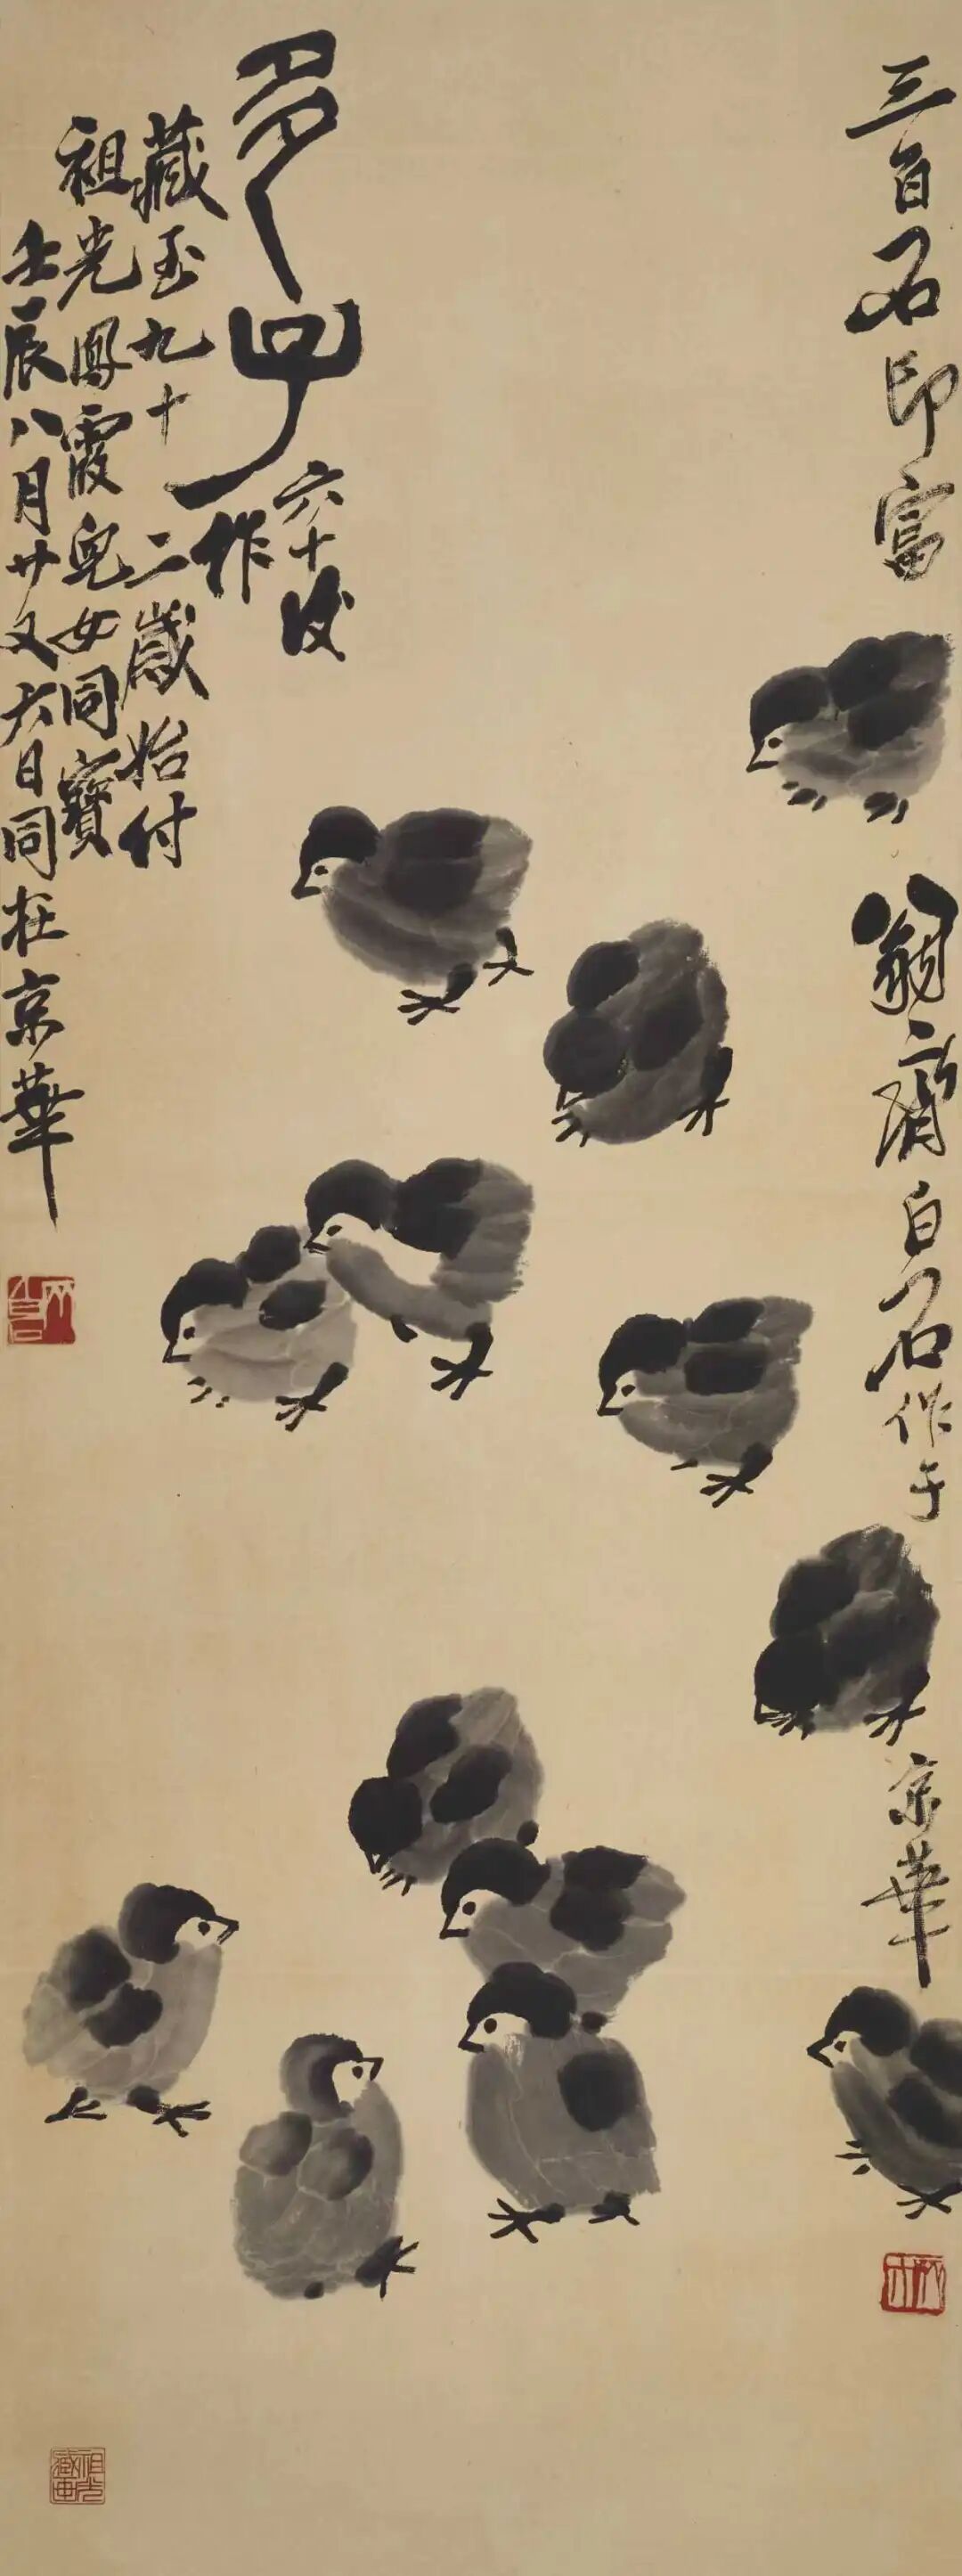 三百石印富翁齊白石作于京華
多子
六十後
作
藏至九十二歲始付
祖光鳳霞兒女同寶
壬辰八月廿又六日同在京華
齊白石
祖光藏畫